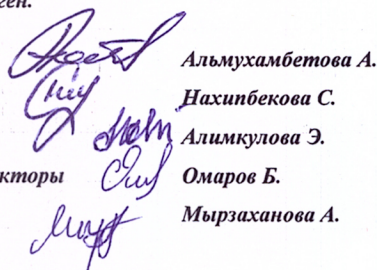 ген.
Альмухамбетова А.
Нахипбекова С.
Алимкулова Э.
кторы Омаров Б.
Мырзаханова А.